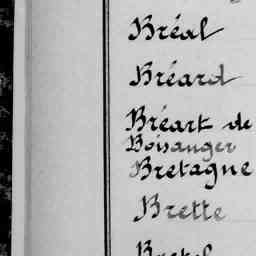 Bréal
Bréard
Bréart de
Boisanger
Bretagne
Brette